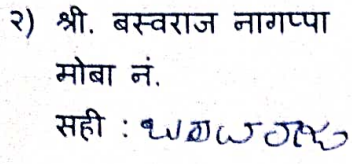 २) श्री. बस्वराज नागप्पा
मोबा नं.
सही :